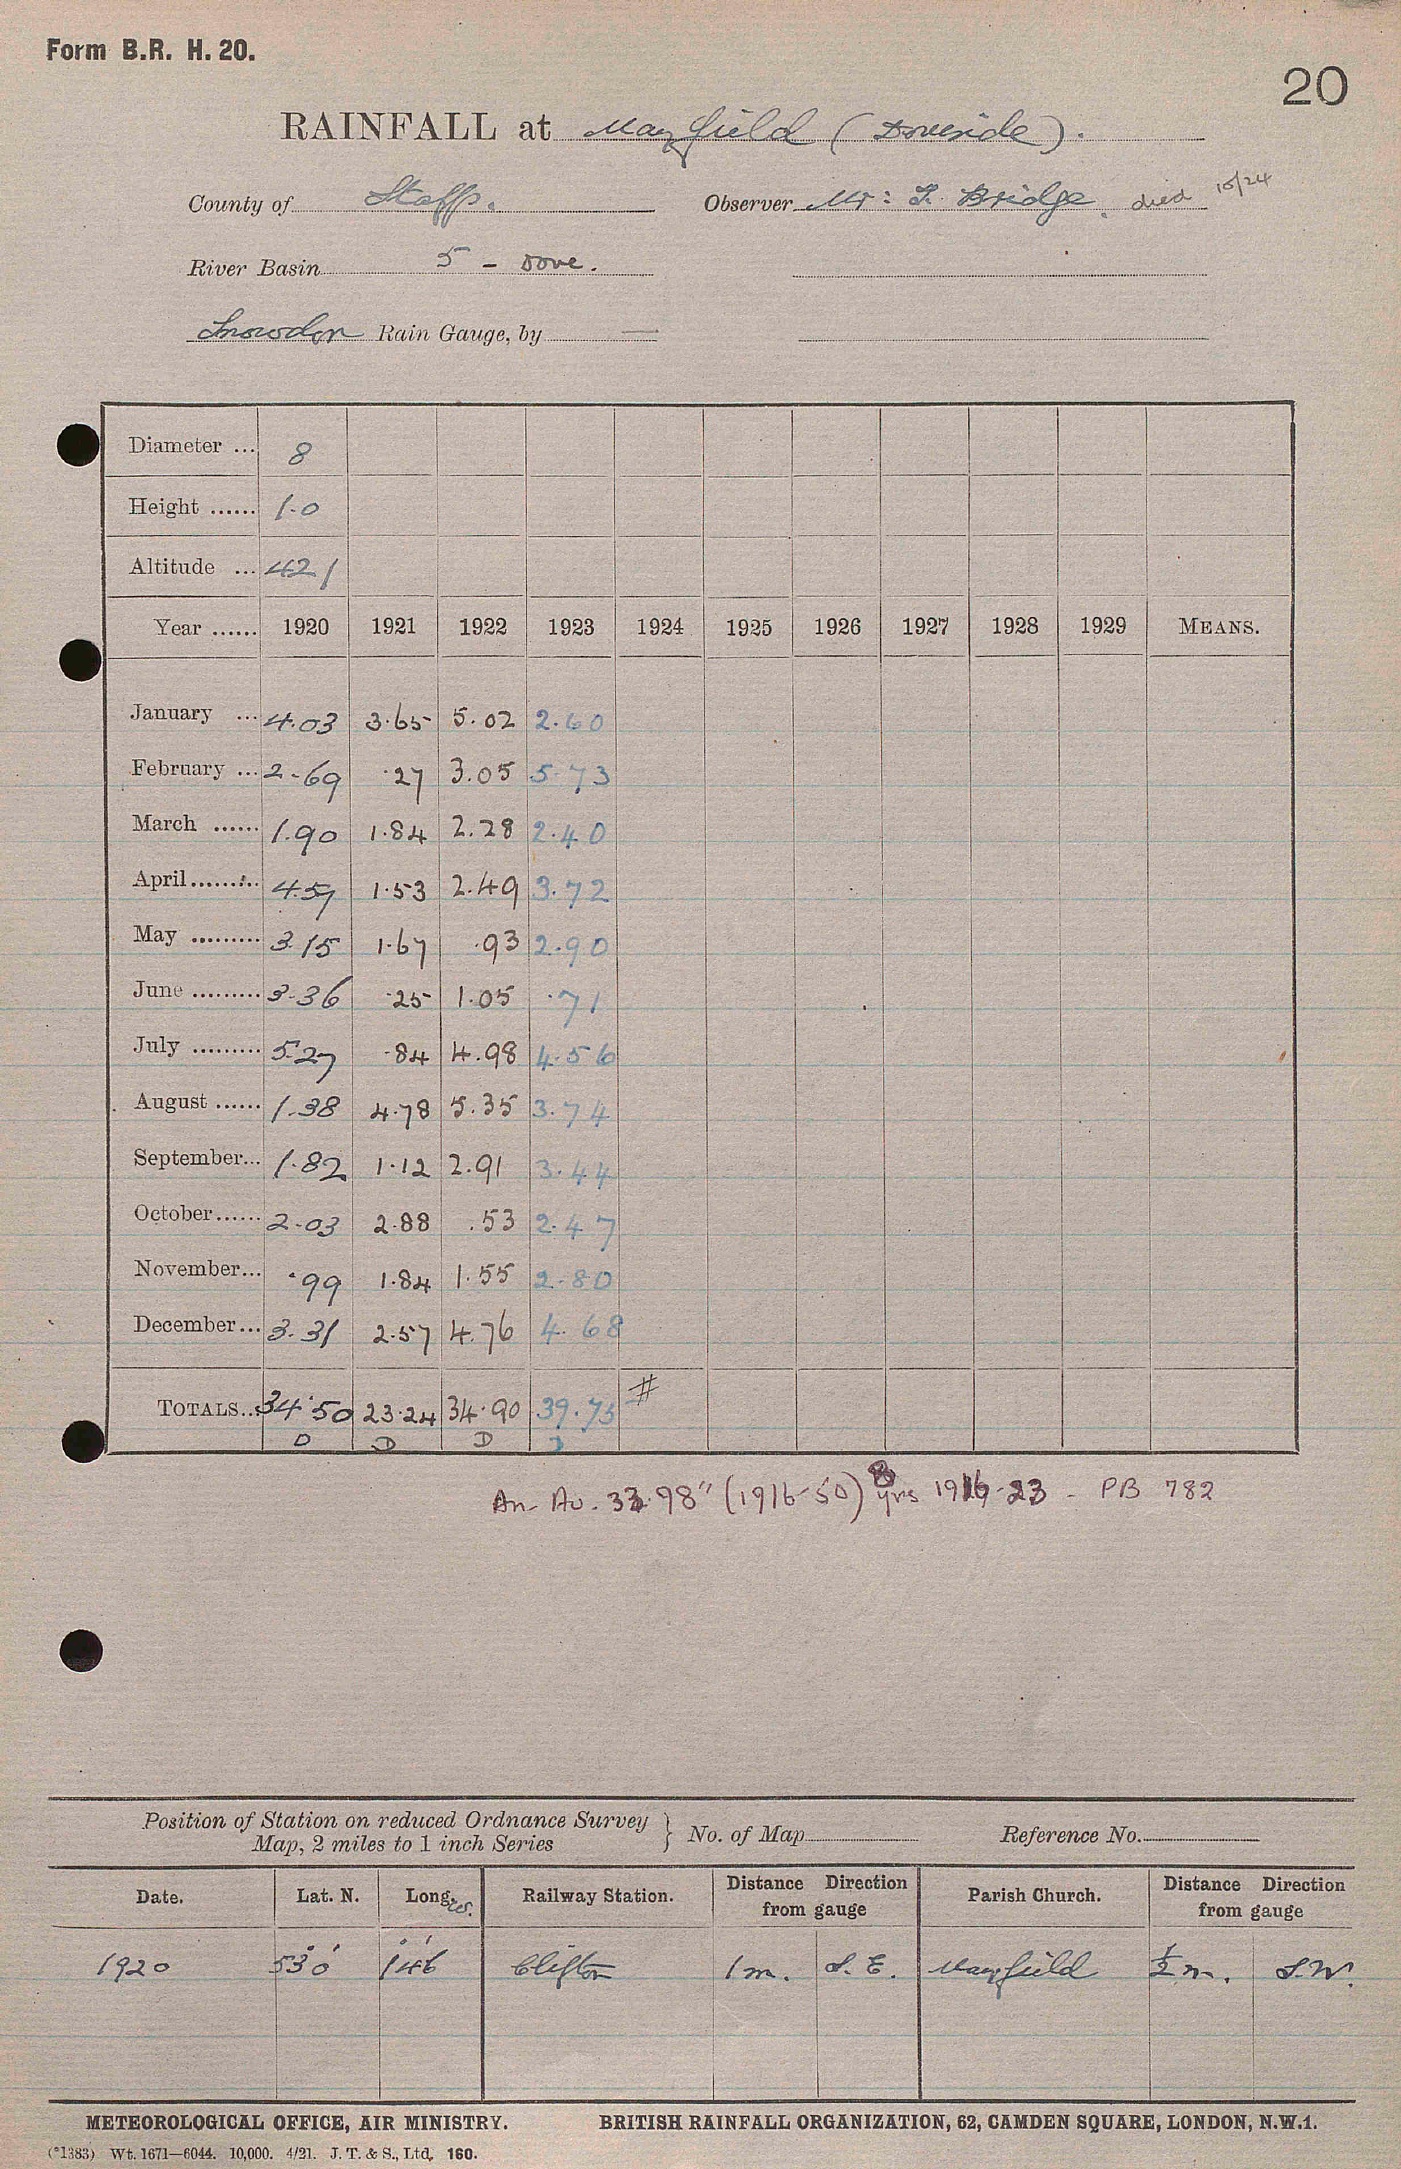 Form B.R. H. 20.
20
RAINFALL at Mayfield (Doveside).
County of Staffs. Observer Mr: F. Bridge. died 15/24
River Basin 5 - Dove.
Snowdon Rain Gauge, by —
Diameter ... 8
Height ...... 1.0
Altitude ... 421
Year ...... 1920 1921 1922 1923 1924 1925 1926 1927 1928 1929 MEANS.
January ... 4.03 3.65 5.02 2.60
February ... 2.69 .27 3.05 5.73
March ...... 1.90 1.84 2.28 2.40
April ......... 4.57 1.53 2.49 3.72
May ......... 3.15 1.67 .93 2.90
June ......... 3.36 .25 1.05 .71
July ......... 5.27 .84 4.98 4.56
August ...... 1.38 4.78 5.35 3.74
September... 1.82 1.12 2.91 3.44
October...... 2.03 2.88 .53 2.47
November... .99 1.84 1.55 2.80
December... 3.31 2.57 4.76 4.68
TOTALS... 34.50 23.24 34.90 39.75 #
D D D D
An. Av. 33.98" (1916-50) 8 yrs 1916-23 - PB 782
Position of Station on reduced Ordnance Survey
Map, 2 miles to 1 inch Series } No. of Map Reference No.
Date. Lat. N. Long. W. Railway Station. Distance Direction from gauge Parish Church. Distance Direction from gauge
1920 53° 0' 1° 46' Clifton 1 m. S.E. Mayfield ½ m. S.W.
METEOROLOGICAL OFFICE, AIR MINISTRY. BRITISH RAINFALL ORGANIZATION, 62, CAMDEN SQUARE, LONDON, N.W.1.
(*1383) Wt. 1671—6044. 10,000. 4/21. J. T. & S., Ltd. 160.